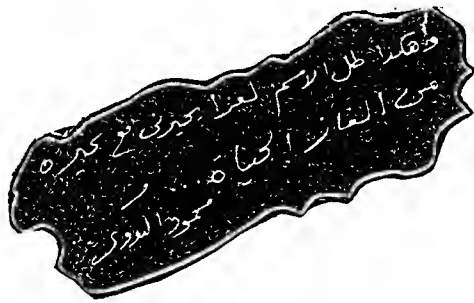 وهكذا ظل الاسم لغزا يحيرنى مع غيره
من ألغاز الحياة ...
محمود البدوى